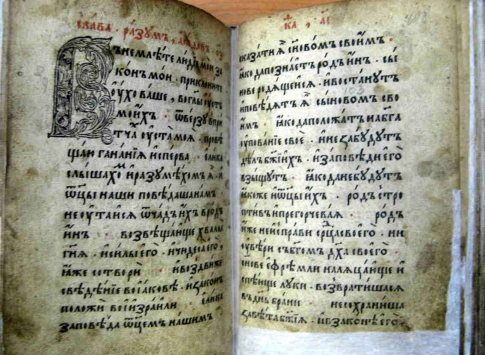 слава . разум
Внемлете людїе мои за
конъ мои . приклоните
оухо ваше , въ глы оустъ
моихъ . ѿверзу в при
тча оуста моя . провѣ
щаю гананїя исперва . елика
слышахо и разумѣхомъ я . и
ѿцы наши повѣдаша намъ
не оутаися ѿ чадъ ихъ в родъ
инъ . возвѣщающе хвалы
гня . и силы его . и чюдеса его
яже сотвори . и воздвиже
свѣдѣние во иаковѣ . и законъ
положи во израили . елика
заповѣда ѿцемъ нашимъ
сказати я сыновомъ своимъ
яко да познаетъ родъ инъ . сы
нове родящеися . и востанутъ
и повѣдятъ я сыновомъ сво
имъ . яко да положатъ на бга
упование свое . и не забудутъ
дѣлъ бжиихъ . и заповѣди его
взыщутъ . яко да не будутъ
якоже ѿцы ихъ . родъ стро
птивъ и прегорчевая . родъ
иже не исправи срца своего . и не
увѣри съ бгомъ дха своего .
снове ефремли наляцающе и
луки . возвратишася
въ днь брани . не сохраниша
завѣта бжия . и в законѣ его